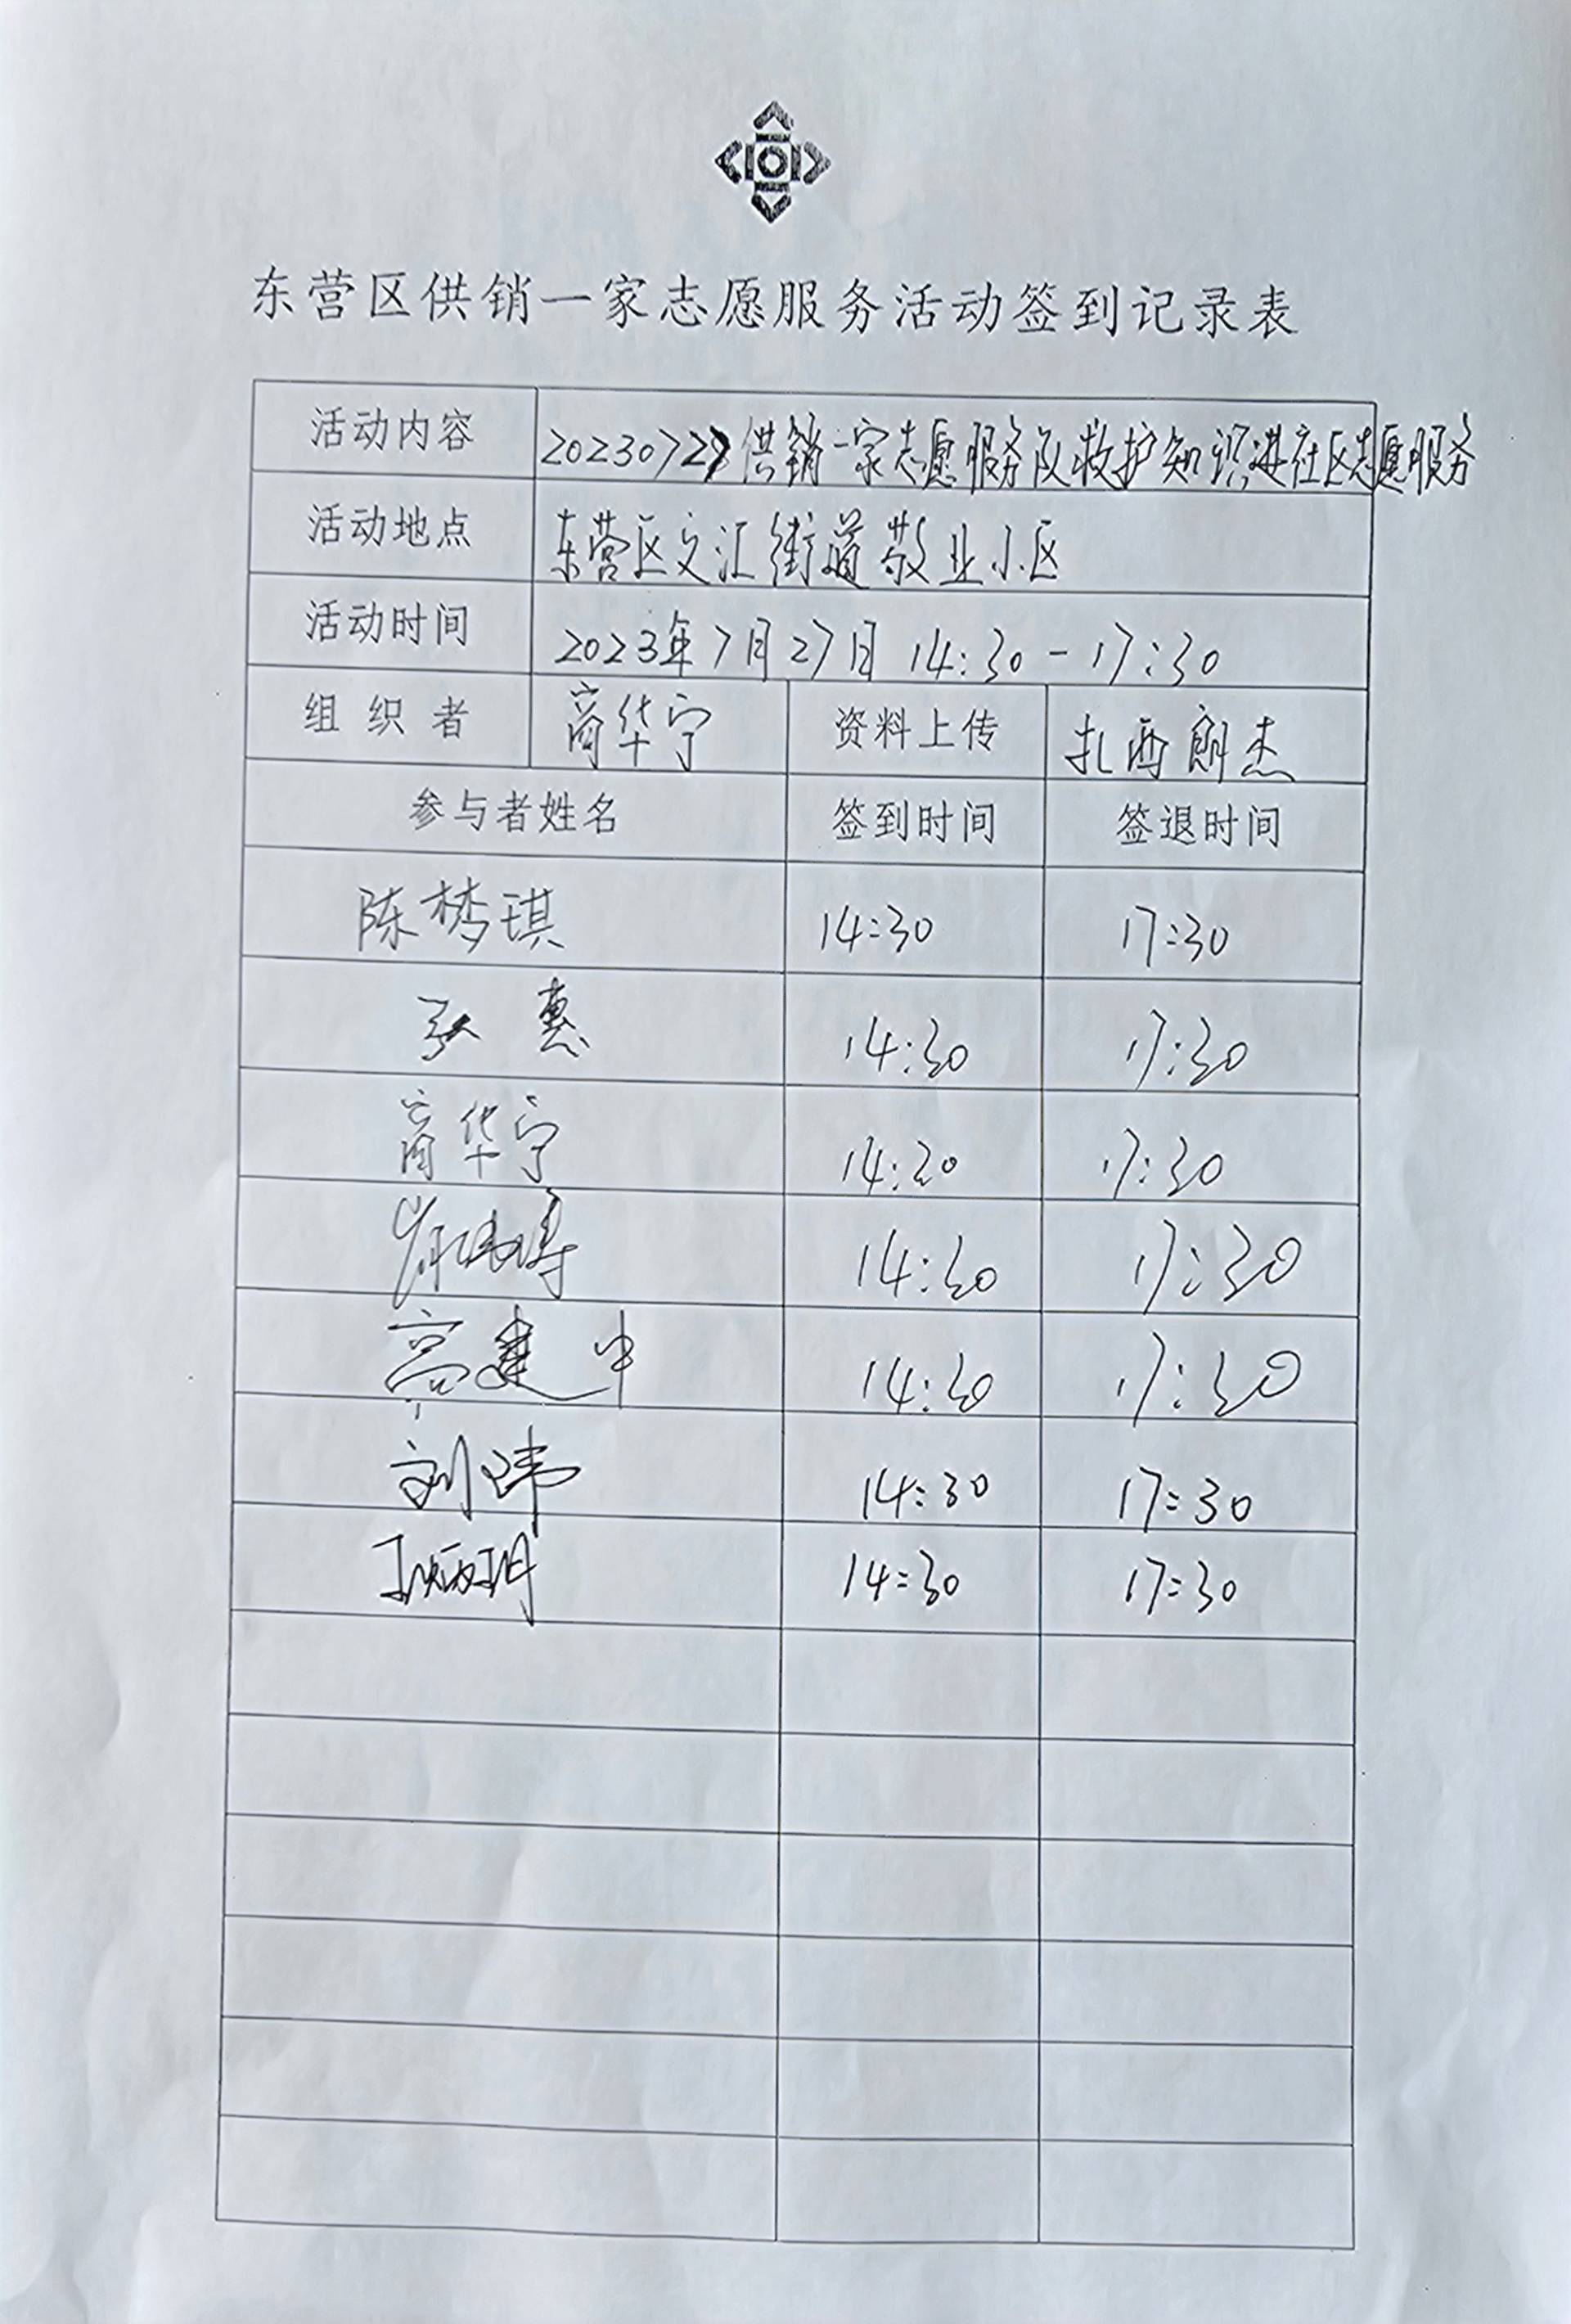 东营区供销一家志愿服务活动签到记录表
活动内容 20230727供销一家志愿服务队救护知识进社区志愿服务
活动地点 东营区文汇街道敬业小区
活动时间 2023年7月27日 14:30-17:30
组织者 商华宁 资料上传 扎西朗杰
参与者姓名 签到时间 签退时间
陈梦琪 14:30 17:30
张惠 14:30 17:30
商华宁 14:30 17:30
14:30 17:30
高建中 14:30 17:30
刘玮 14:30 17:30
14:30 17:30